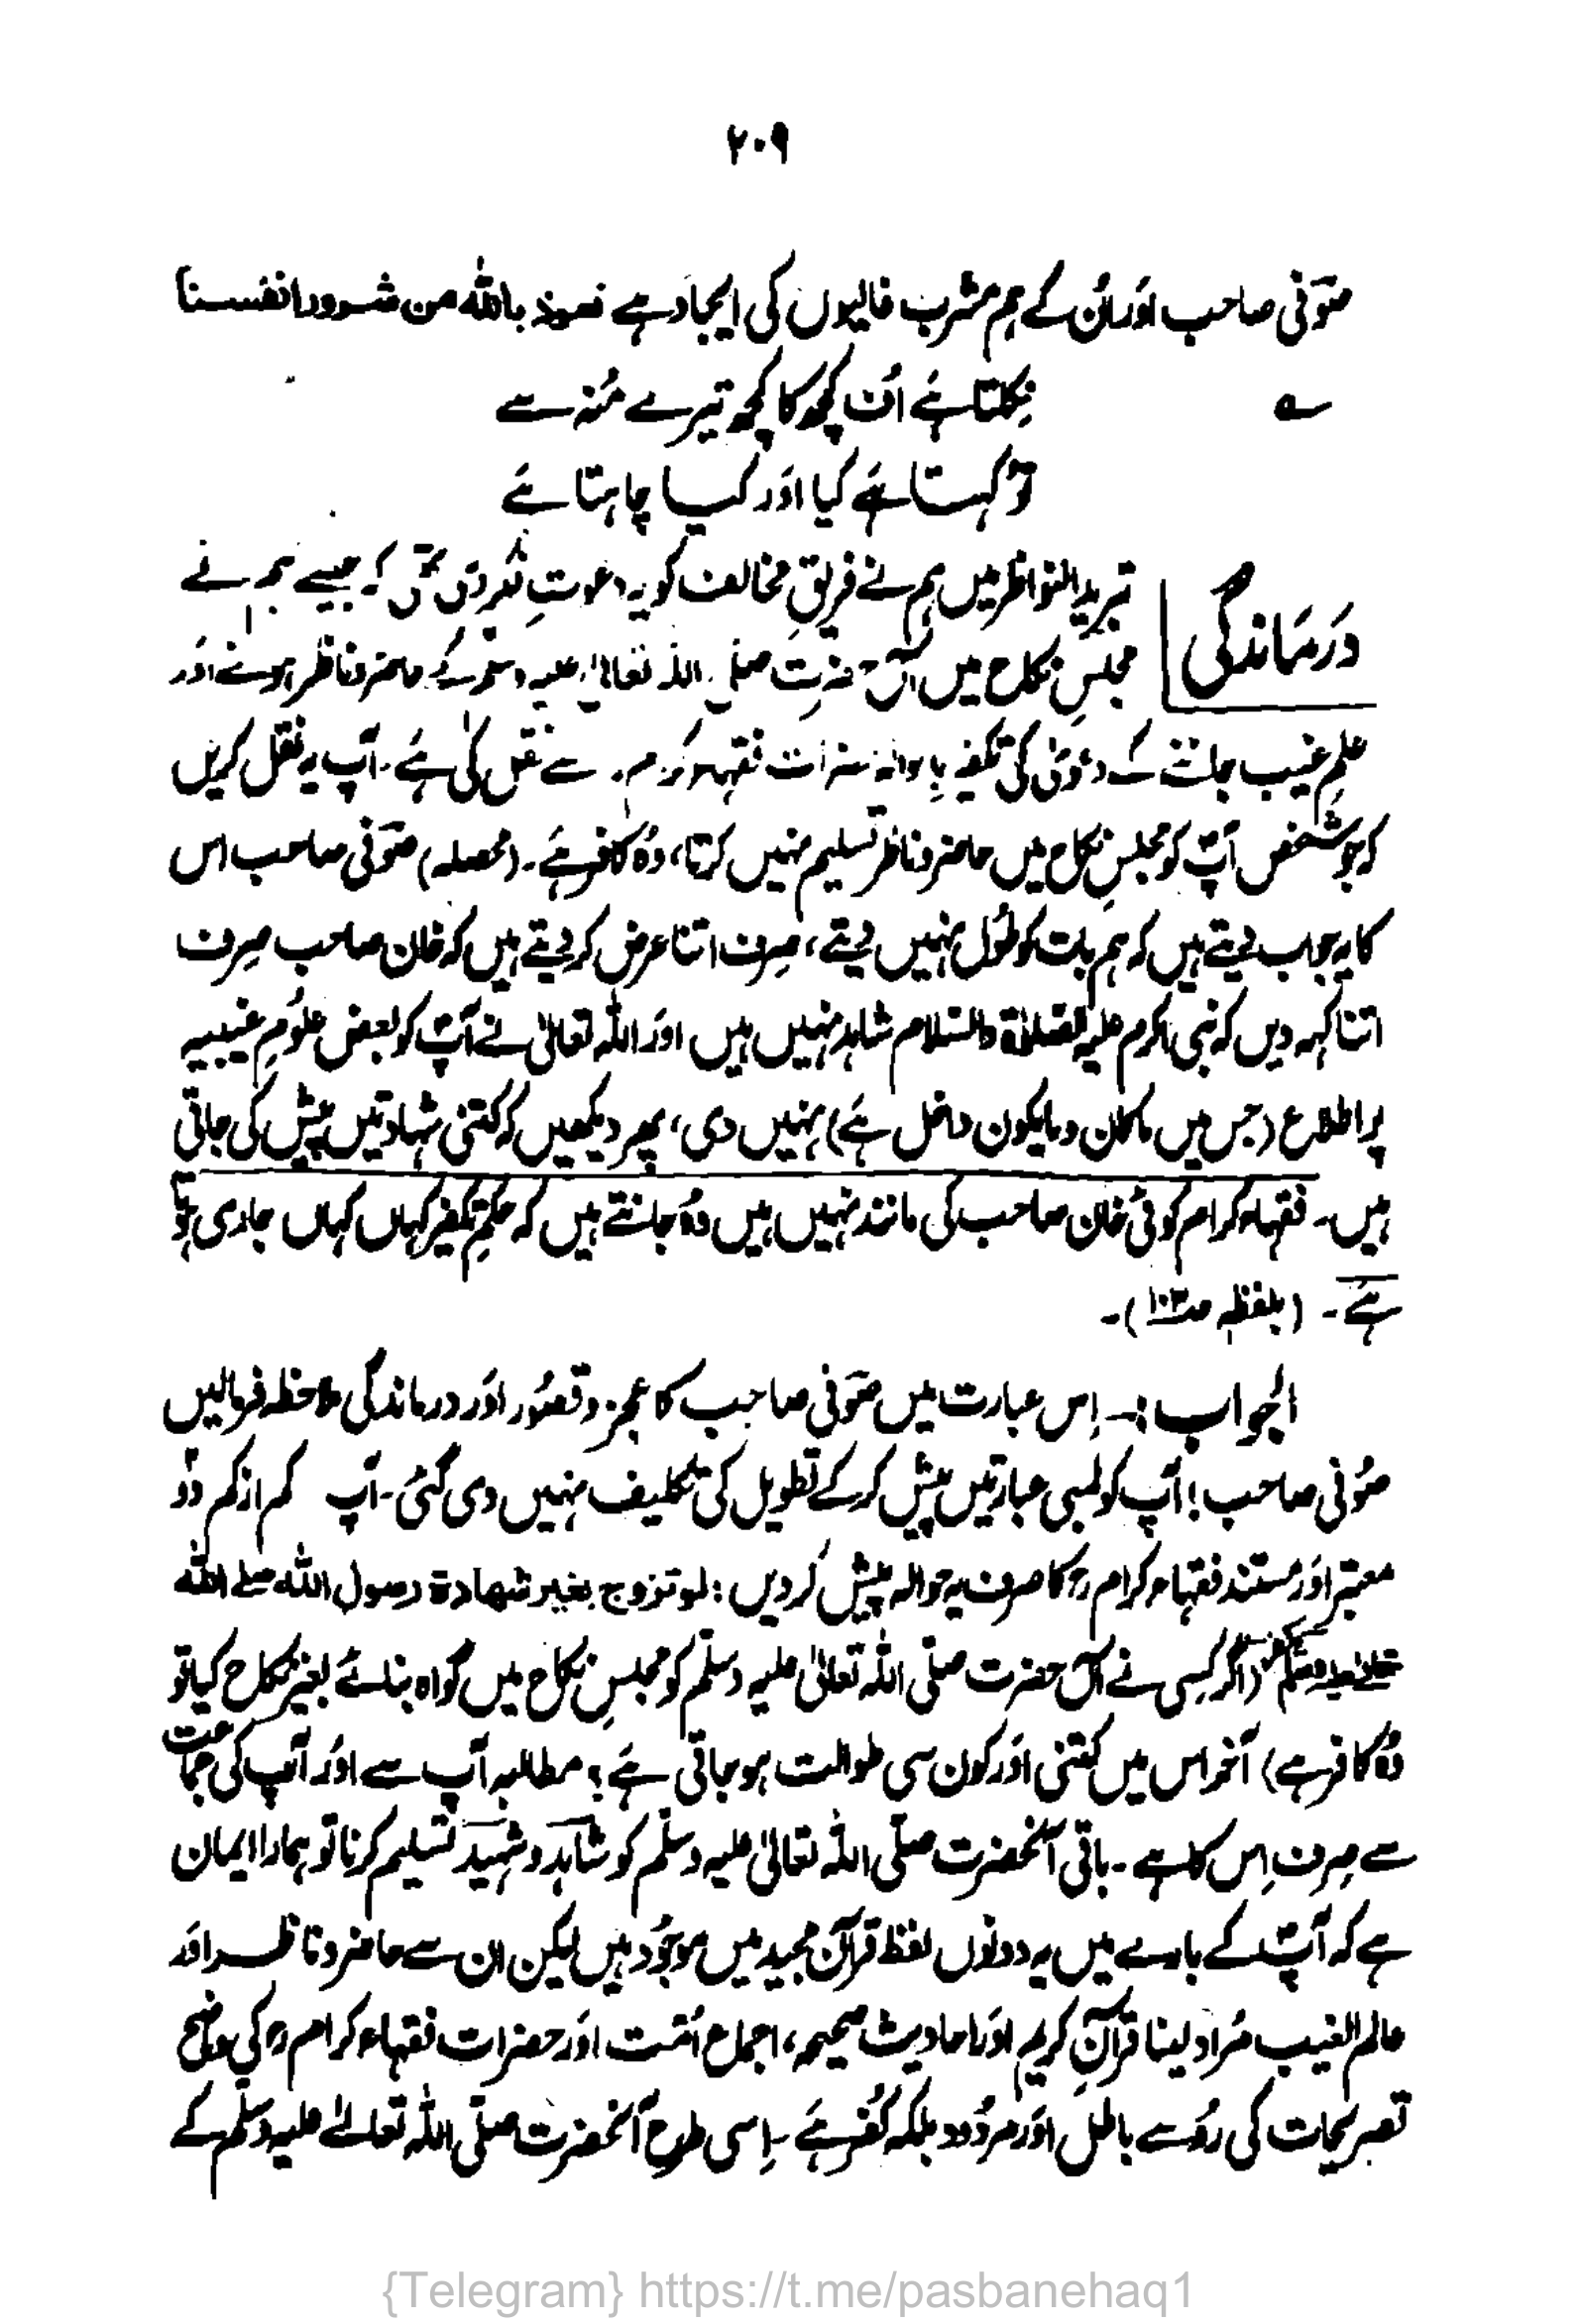 ۲۰۹
صوفی صاحب اور اُن کے ہم مشرب غالیوں کی ایجاد ہے نعوذ باللہ من شرور انفسنا
؎ نِکلتا ہَے اُف کچھ کا کچھ تیرے مُنہ سے
تو کہتا ہَے کیا اور کیا چاہتا ہَے
درماندگی
تبرید النواظر میں ہم نے فریقِ مخالف کو یہ دعوتِ فکر دی تھی کہ جیسے ہم نے
مجلسِ نکاح میں آں حضرت صلی اللہ تعالیٰ علیہ وسلم کے حاضر و ناظر ہونے اور
علمِ غیب جاننے کے دعویٰ کی تکفیر باحوالہ حضرات فقہاء کرامؒ سے نقل کی ہَے۔ آپ یہ نقل کریں
کہ جو شخص آپؐ کو مجلسِ نکاح میں حاضر و ناظر تسلیم نہیں کرتا، وُہ کافر ہَے۔ (محصلہ) صوفی صاحب اس
کا یہ جواب دیتے ہیں کہ ہم بات کو طُول نہیں دیتے، صِرف اتنا عرض کر دیتے ہیں کہ خان صاحب صِرف
اتنا کہہ دیں کہ نبی اکرم علیہ الصلوٰۃ والسّلام شاہد نہیں ہیں اور اللہ تعالیٰ نے آپؐ کو بعض علُومِ غیبیہ
پر اطلاع (جس میں ماکان ومایکون داخل ہَے) نہیں دی، پھر دیکھیں کہ کتنی شہادتیں پیش کی جاتی
ہیں۔ فقہاء کرام کوئی خان صاحب کی مانند نہیں ہیں وُہ جانتے ہیں کہ حکمِ تکفیر کہاں کہاں جاری ہوتا
ہَے۔ (بلفظہٖ صـ۱۰۳)۔
الجواب :۔ اِس عبارت میں صوفی صاحب کا عجز و قصُور اور درماندگی ملاحظہ فرمالیں
صُوفی صاحب! آپ کو لمبی عبارتیں پیش کر کے تطویل کی تکلیف نہیں دی گئی۔ آپ کم از کم دو
معتبر اور مستند فقہاء کرامؒ کا صرف یہ حوالہ پیش کر دیں : لو تزوج بغیر شھادۃ رسول اللہ صلے اللہ
تعالےٰ علیہ وسلم کفر (اگر کسی نے آں حضرت صلّی اللہ تعالیٰ علیہ وسلّم کو مجلسِ نکاح میں گواہ بنائے بغیر نکاح کیا تو
وُہ کافر ہے) آخر اس میں کتنی اور کون سی طوالت ہو جاتی ہَے؟ مطالبہ آپ سے اور آپ کی جماعت
سے صِرف اِس کا ہے۔ باقی آنحضرت صلّی اللہ تعالیٰ علیہ وسلّم کو شاہد و شہید تسلیم کرنا تو ہمارا ایمان
ہے کہ آپؐ کے بارے میں یہ دونوں لفظ قرآن مجید میں موجُود ہیں لیکن ان سے حاضر و ناظر اور
عالم الغیب مُراد لینا قرآنِ کریم اور احادیث صحیحہ، اجماع اُمّت اور حضرات فقہاء کرامؒ کی واضح
تصریحات کی رُو سے باطل اور مردُود بلکہ کُفر ہَے۔ اِسی طرح آنحضرت صلّی اللہ تعالےٰ علیہ وسلم کے
{Telegram} https://t.me/pasbanehaq1